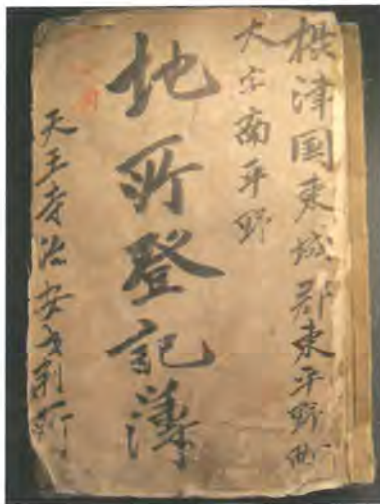 摂津国東城郡東平野町
大字南平野
地所登記簿
天王寺治安裁判所